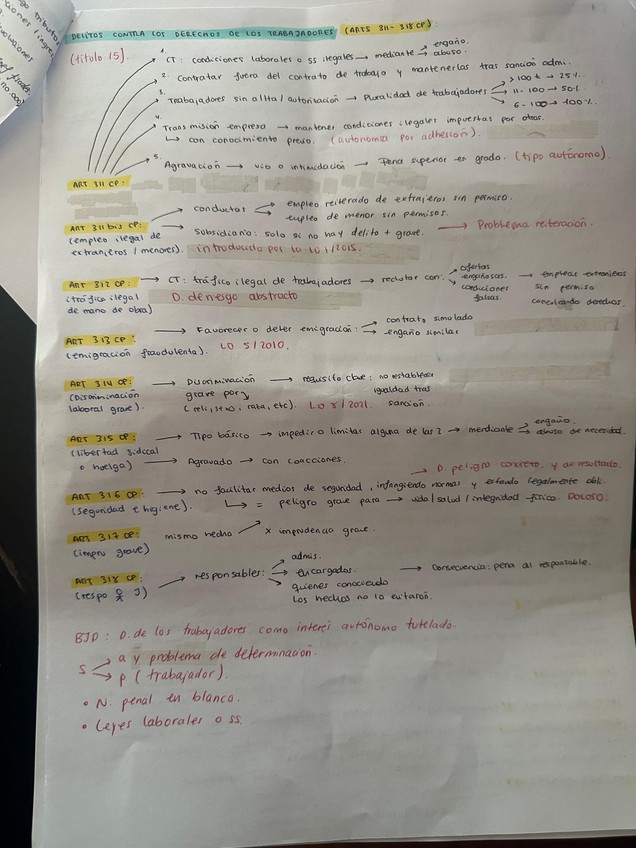 DELITOS CONTRA LOS DERECHOS DE LOS TRABAJADORES (ARTS 311-318 CP):
(título 15).
1. CT: condiciones laborales o ss ilegales → mediante → engaño. → abuso.
2. Contratar fuera del contrato de trabajo y mantenerlas tras sanción admi.
3. Trabajadores sin alta/autorización → Pluralidad de trabajadores → >100 t → 25%. → 11-100 → 50% → 6-100 → 100%.
4. Transmisión empresa → mantener condiciones ilegales impuestas por otros.
↳ con conocimiento previo. (autonomía por adhesión).
5. Agravación → vio o intimidación → Pena superior en grado. (tipo autónomo).
ART 311 CP:
ART 311 bis CP:
(empleo ilegal de
extranjeros / menores).
conductas → empleo reiterado de extranjeros sin permiso. → empleo de menor sin permisos.
Subsidiario: solo si no hay delito + grave. → Problema reiteración.
introducido por la LO 1/2015.
ART 312 CP:
(tráfico ilegal
de mano de obra)
→ CT: tráfico ilegal de trabajadores → reclutar con: → ofertas engañosas. → condiciones falsas. → emplear extranjeros sin permiso
D. de riesgo abstracto
ART 313 CP:
(emigración fraudulenta).
→ Favorecer o deter emigración: → contrato simulado → engaño similar
LO 5/2010.
ART 314 CP:
(Discriminación
laboral grave).
→ Discriminación grave por → requisito clave: no restablecer igualdad tras sanción.
(reli, sexo, raza, etc).
ART 315 CP:
(libertad sidical
o huelga)
→ Tipo básico → impedir o limitar alguna de las 2 → mendiante → engaño. → abuso de necesidad.
→ Agravado → con coacciones.
→ D. peligro concreto y de resultado.
ART 316 CP:
(seguridad e higiene).
→ no facilitar medios de seguridad, infringiendo normas y estando legalmente obli.
↳ = peligro grave para → vida/salud/integridad física. DOLOSO.
ART 317 CP:
(impru grave)
mismo hecho → x imprudencia grave.
ART 318 CP:
(respo J)
→ responsables: → admis. → encargados. → quienes conociendo los hechos no lo evitaron. → consecuencia: pena al responsable.
BJP: D. de los trabajadores como interés autónomo tutelado.
S → a y problema de determinación.
→ p (trabajador).
• N. penal en blanco.
• Leyes laborales o ss.